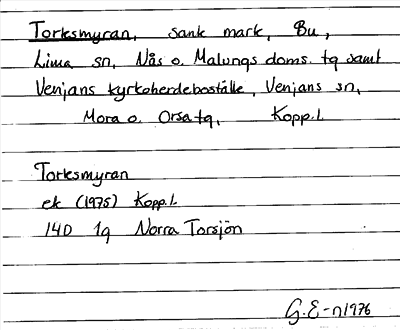 Torksmyran, sank mark, Bu,
Lima sn, Nås o. Malungs doms. tg samt
Venjans kyrkoherdeboställe, Venjans sn,
Mora o. Orsa tg, Kopp. l.
Torksmyran
ek (1975) Kopp. l.
14D 1g Norra Torsjön
G. E-n 1976